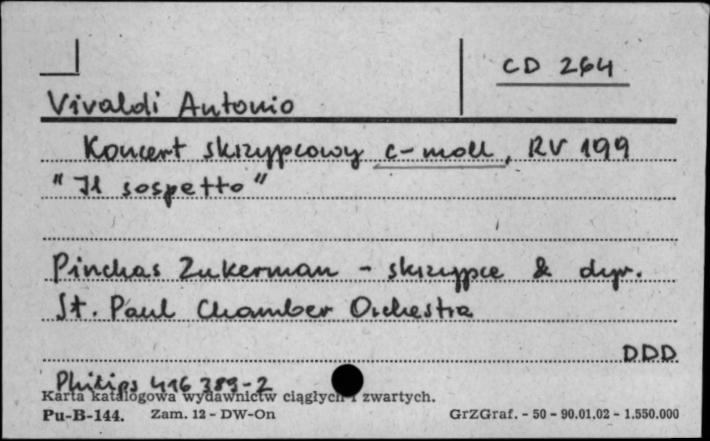 CD 264
Vivaldi Antonio
Koncert skrzypcowy c-moll, RV 199
"Il sospetto"
Pinchas Zukerman - skrzypce & dyr.
St. Paul Chamber Orchestra
DDD
Philips 416 389-2
Karta katalogowa wydawnictw ciągłych i zwartych.
Pu-B-144. Zam. 12 - DW-On GrZGraf. - 50 - 90.01.02 - 1.550.000